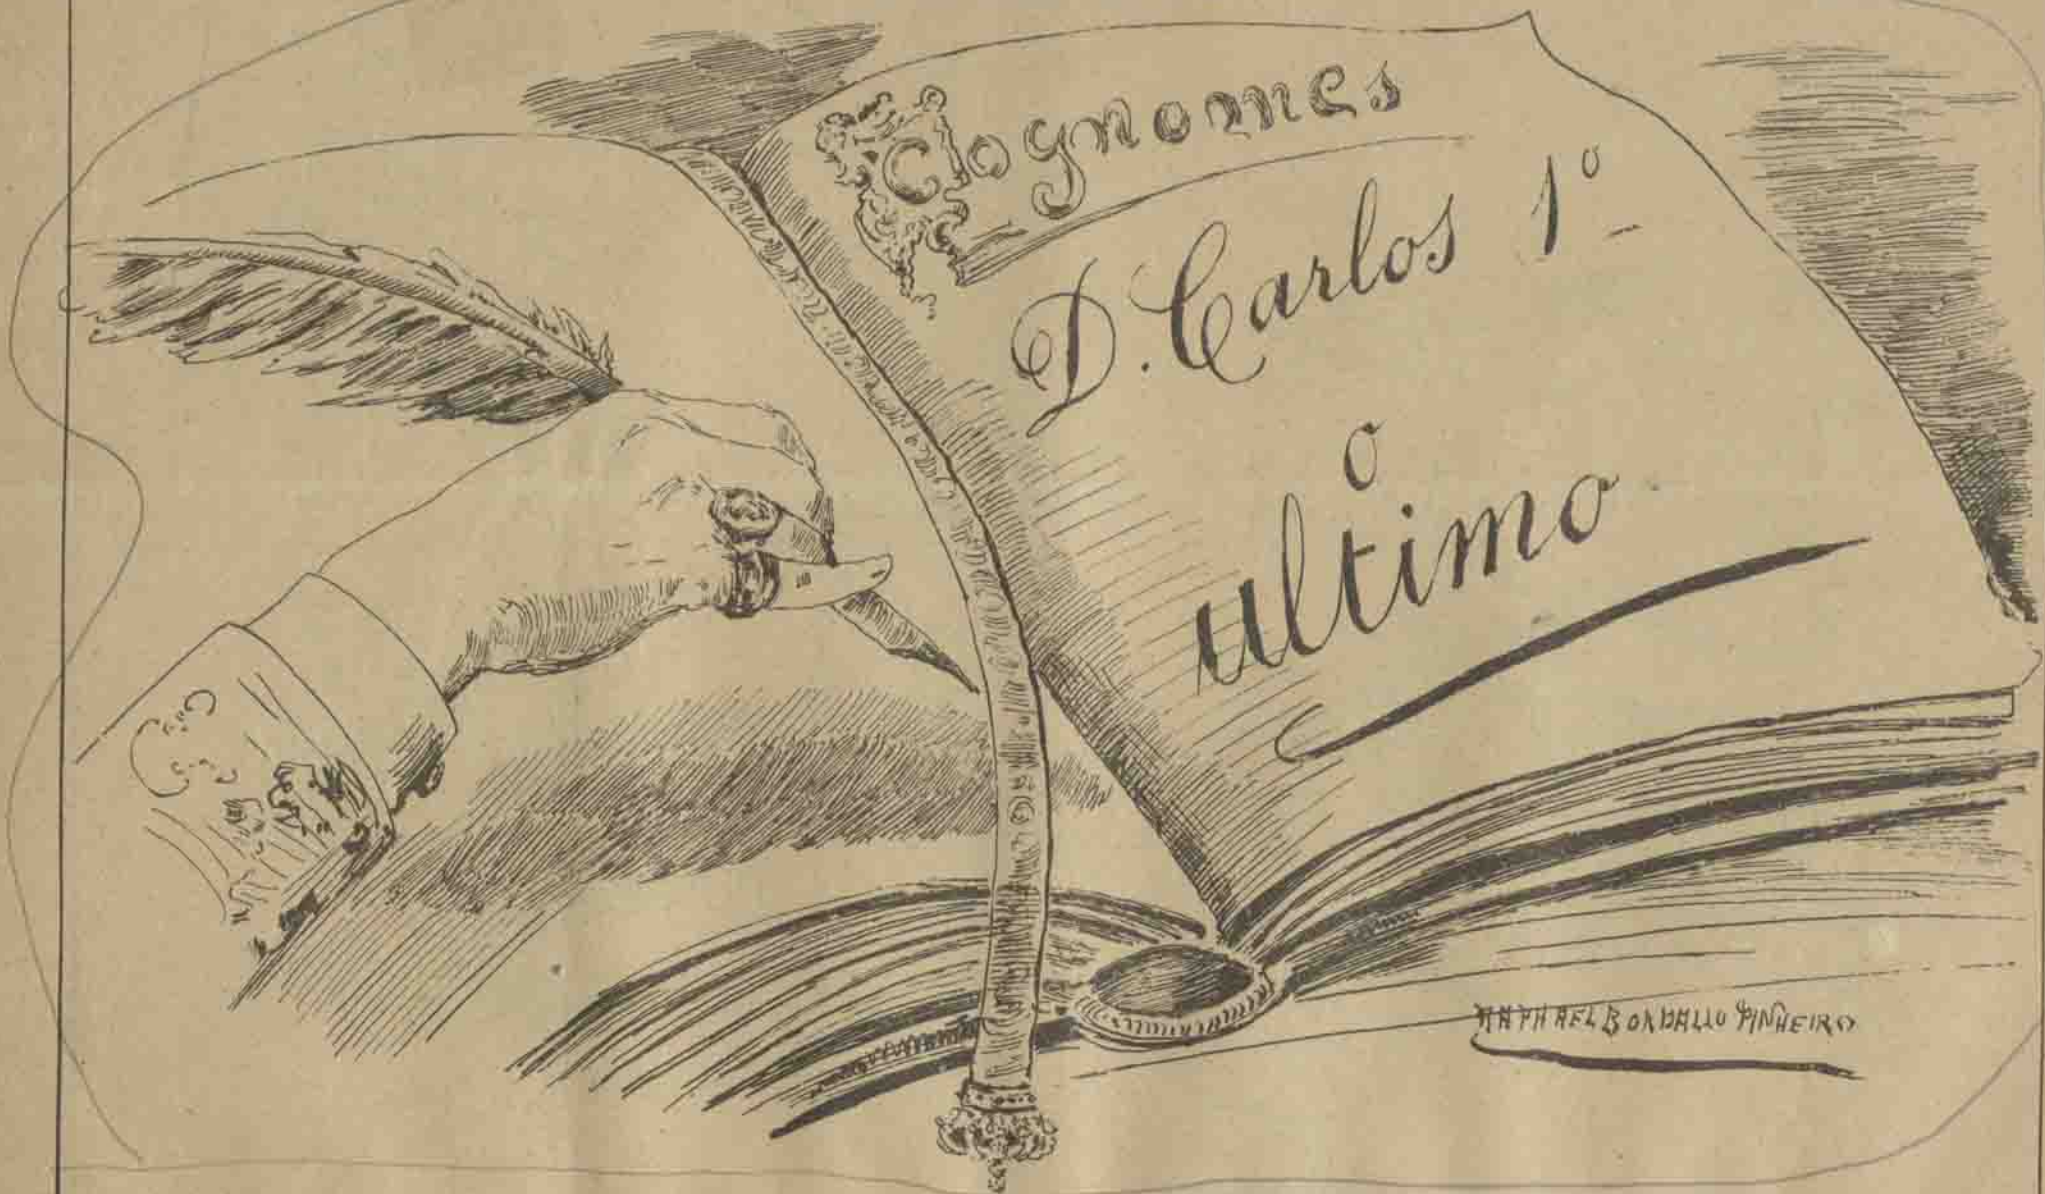 Cognomes
D. Carlos 1º
o
ultimo
RAPHAEL BORDALLO PINHEIRO